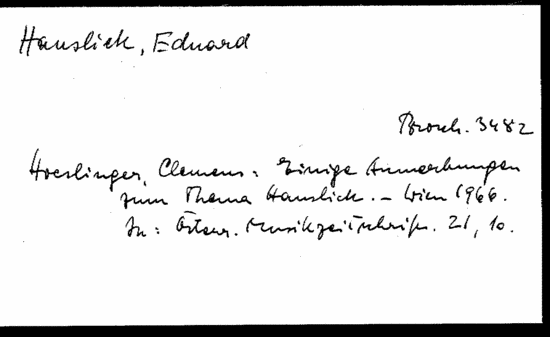 Hanslick, Eduard
Brosch. 3482
Hoeslinger, Clemens: Einige Anmerkungen
zum Thema Hanslick. – Wien 1966.
In: Österr. Musikzeitschrift. 21, 10.